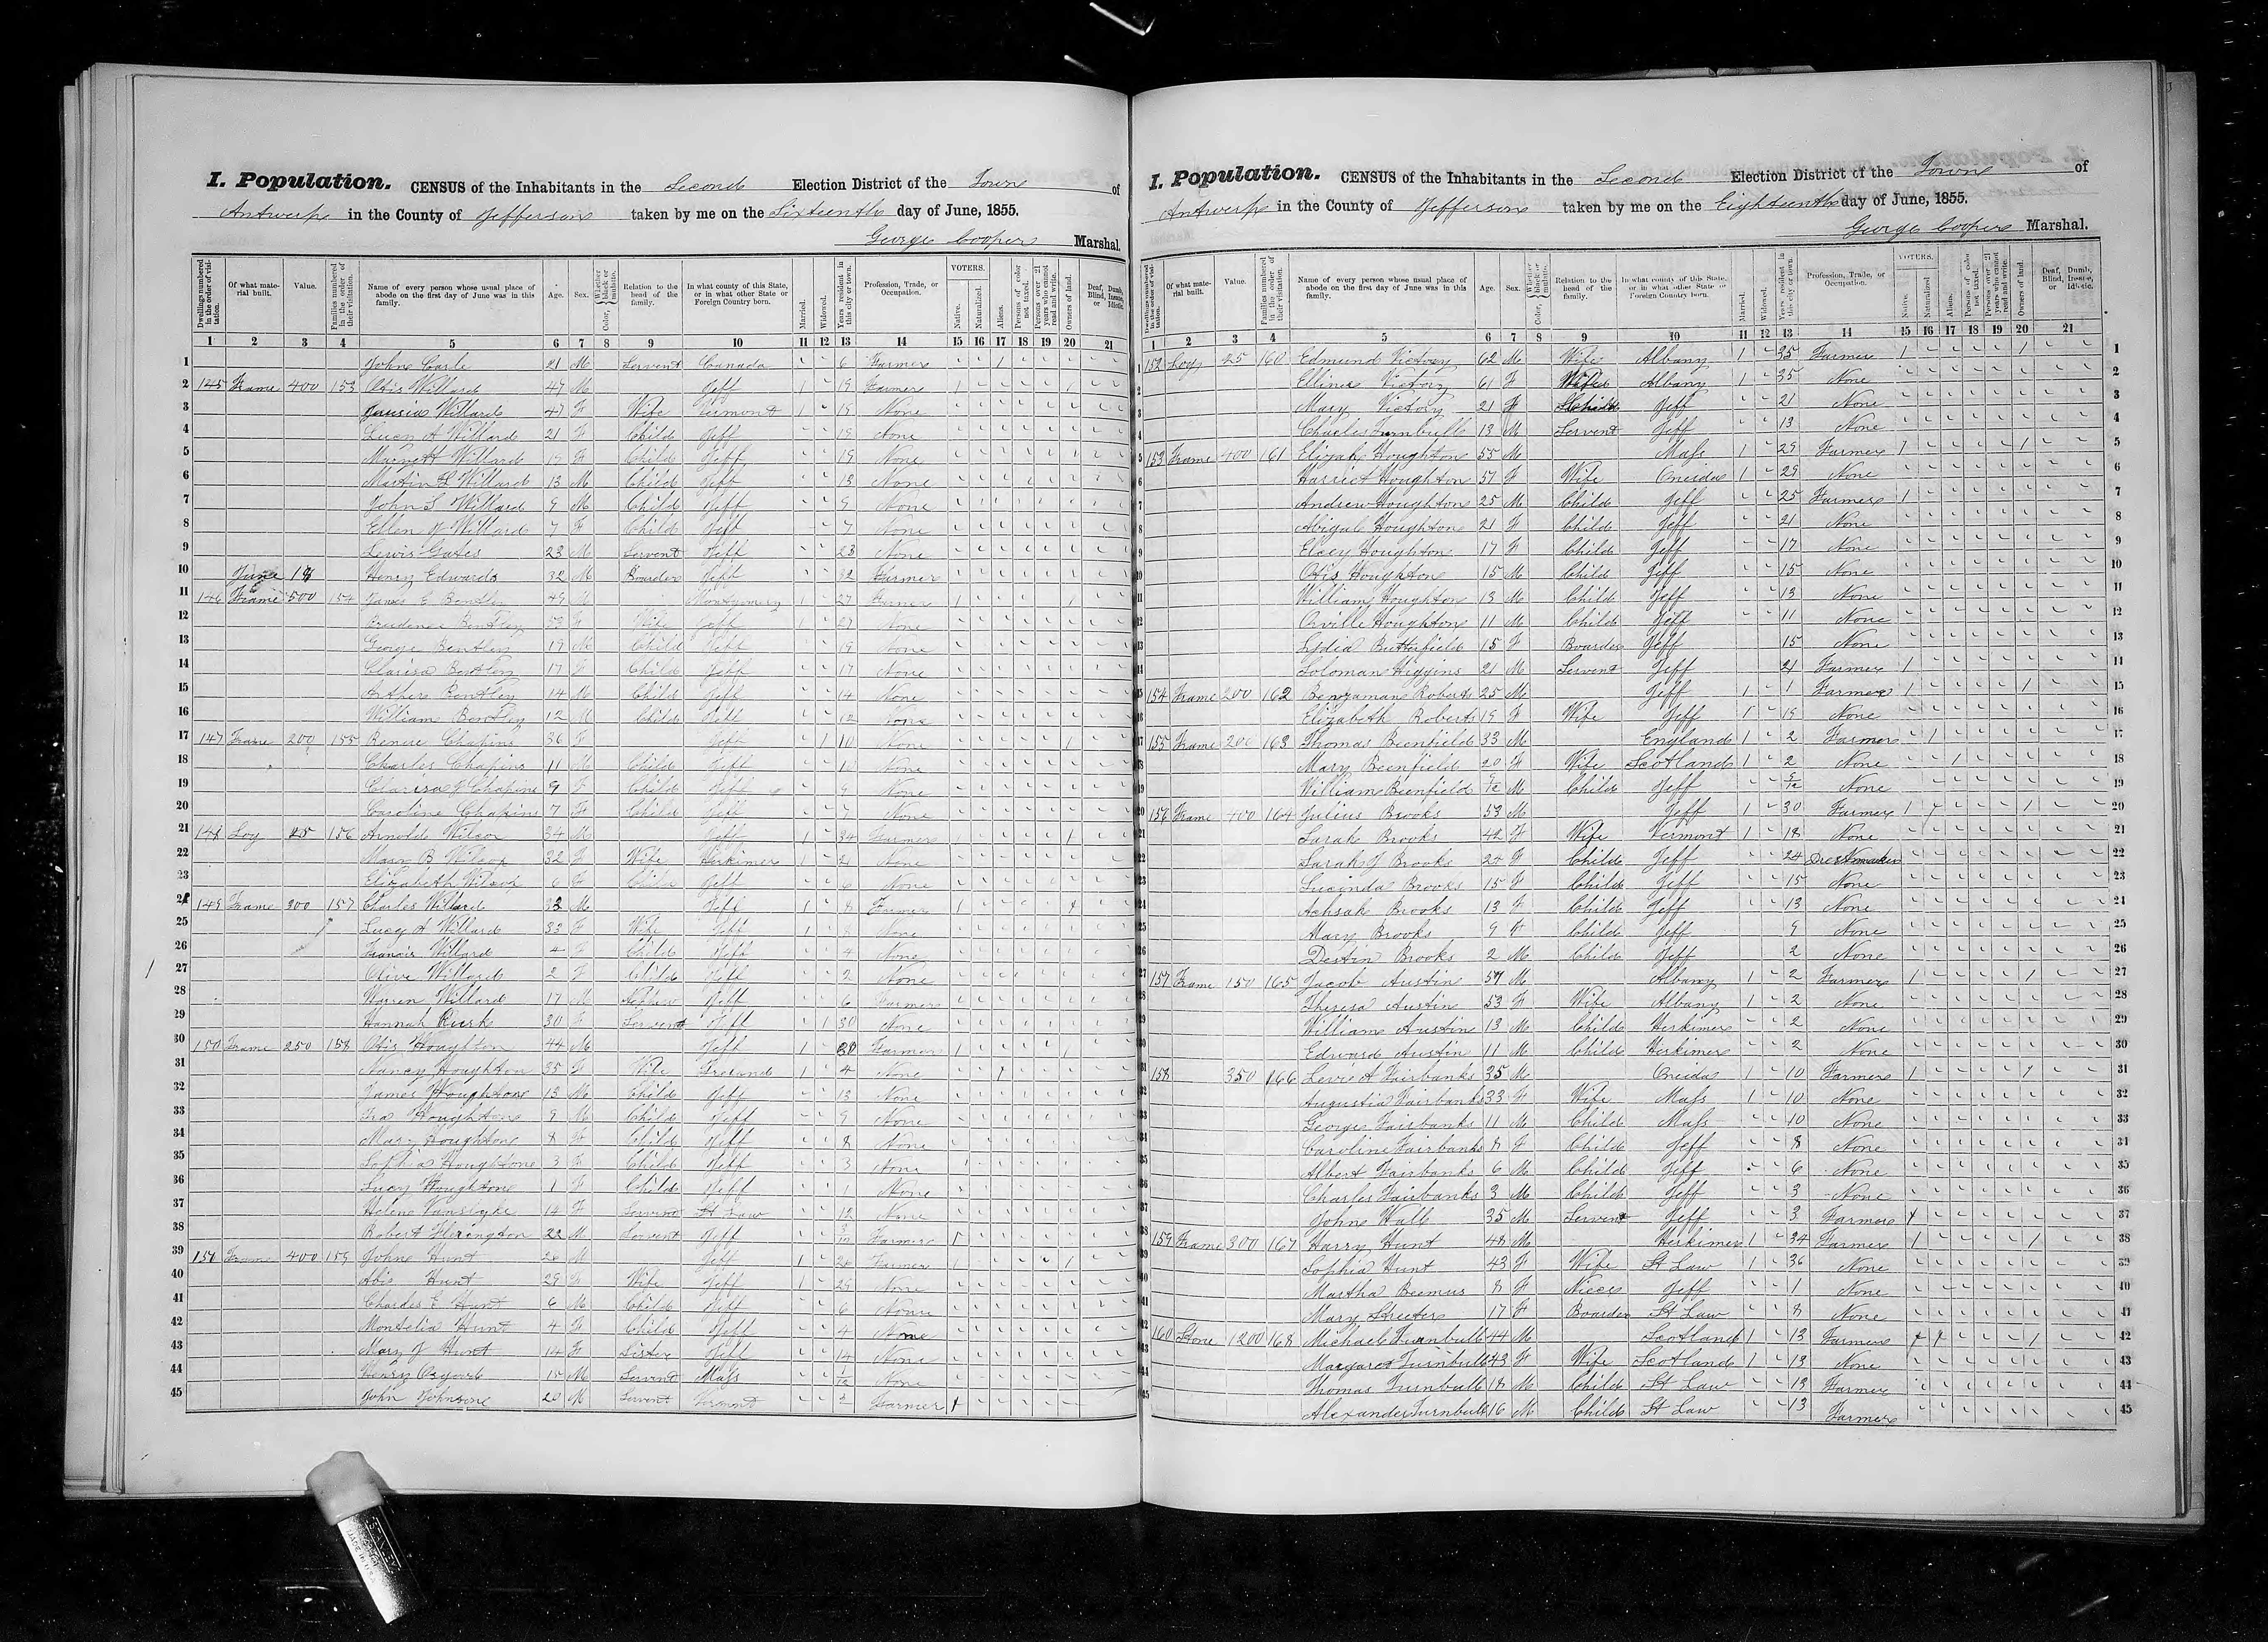 I. Population. CENSUS of the Inhabitants in the Second Election District of the Town of
Antwerp in the County of Jefferson taken by me on the Sixteenth day of June, 1855.
George Cooper Marshal.
Dwellings numbered in the order of visitation. Of what material built. Value. Families numbered in the order of their visitation. Name of every person whose usual place of abode on the first day of June was in this family. Age. Sex. Color, Whether black or mulatto. Relation to the head of the family. In what county of this State, or in what other State or Foreign Country born. Married. Widowed. Years resident in this city or town. Profession, Trade, or Occupation. VOTERS. Native. Naturalized. Aliens. Persons of color not taxed. Persons over 21 years who cannot read and write. Owners of land. Deaf, Dumb, Blind, Insane, or Idiotic.
1 2 3 4 5 6 7 8 9 10 11 12 13 14 15 16 17 18 19 20 21
1 John Carle 21 M Servent Canada 6 Farmer 1
2 145 Frame 400 153 Otis Willard 49 M Jeff 1 19 Farmer 1 1
3 Willard 47 F Wife Vermont 1 19 None
4 Lucy A Willard 21 F Child Jeff 19 None
5 Willard 19 F Child Jeff 19 None
6 Martin L Willard 13 M Child Jeff 13 None
7 John S Willard 9 M Child Jeff 9 None
8 Ellen J Willard 7 F Child Jeff 7 None
9 Lewis Gates 23 M Servent Jeff 23 None
10 June 18 Henry Edwards 32 M Boarder Jeff 32 Farmer
11 146 Frame 500 154 James E Bentley 49 M Montgomery 1 27 Farmer 1
12 Prudence Bentley F Wife Jeff 1 27 None
13 George Bentley 19 M Child Jeff 19 None
14 Clarisa Bentley 17 F Child Jeff 17 None
15 Bentley 14 M Child Jeff 14 None
16 William Bentley 12 M Child Jeff 12 None
17 147 Frame 200 155 Chapin 36 F Jeff 1 10 None 1
18 Charles Chapin 11 M Child Jeff 10 None
19 Clarisa J Chapin 9 F Child Jeff 9 None
20 Caroline Chapin 7 F Child Jeff 7 None
21 148 Log 25 156 Arnold Wilcox 34 M Jeff 1 34 Farmer 1
22 Mary B Wilcox 32 F Wife Herkimer 1 21 None
23 Elizabeth Wilcox 6 F Child Jeff 6 None
24 149 Frame 300 157 Charles Willard 32 M Jeff 1 8 Farmer 1 1
25 Lucy A Willard 33 F Wife Jeff 1 8 None
26 Francis Willard 4 F Child Jeff 4 None
27 Olive Willard 2 F Child Jeff 2 None
28 Warren Willard 17 M Jeff 6 Farmer
29 Hannah Rusk 30 F Servent Jeff 1 30 None
30 150 Frame 250 158 Otis Houghton 44 M Jeff 1 30 Farmer 1 1
31 Nancy Houghton 35 F Wife Ireland 1 4 None 1
32 James Houghton 13 M Child Jeff 13 None
33 Ira Houghton 9 M Child Jeff 9 None
34 Mary Houghton 8 F Child Jeff 8 None
35 Sophia Houghton 3 F Child Jeff 3 None
36 Lucy Houghton 1 F Child Jeff 1 None
37 Helen 14 F Servent St Law 12 None
38 Robert 22 M Servent Jeff 3/12 Farmer 1
39 151 Frame 400 159 John Hunt 26 M Jeff 1 26 Farmer 1 1
40 Abis Hunt 29 F Wife Jeff 1 29 None
41 Charles E Hunt 6 M Child Jeff 6 None
42 Montelia Hunt 4 F Child Jeff 4 None
43 Mary J Hunt 14 F Sister Jeff 14 None
44 Henry Osgood 15 M Servent Mass 1/12 None
45 John Johnson 20 M Servent Vermont 2 Farmer 1
I. Population. CENSUS of the Inhabitants in the Second Election District of the Town of
Antwerp in the County of Jefferson taken by me on the Eighteenth day of June, 1855.
George Cooper Marshal.
Dwellings numbered in the order of visitation. Of what material built. Value. Families numbered in the order of their visitation. Name of every person whose usual place of abode on the first day of June was in this family. Age. Sex. Color, Whether black or mulatto. Relation to the head of the family. In what county of this State, or in what other State or Foreign Country born. Married. Widowed. Years resident in this city or town. Profession, Trade, or Occupation. VOTERS. Native. Naturalized. Aliens. Persons of color not taxed. Persons over 21 years who cannot read and write. Owners of land. Deaf, Dumb, Blind, Insane, or Idiotic.
1 2 3 4 5 6 7 8 9 10 11 12 13 14 15 16 17 18 19 20 21
1 152 Log 25 160 Edmund Victory 62 M Wife Albany 1 35 Farmer 1 1
2 Elliner Victory 61 F Wife Albany 1 35 None
3 Mary Victory 21 F Child Jeff 21 None
4 Charles Turnbull 13 M Servent Jeff 13 None
5 153 Frame 400 161 Elizah Houghton 55 M Mass 1 29 Farmer 1 1
6 Harriet Houghton 57 F Wife Oneida 1 29 None
7 Andrew Houghton 25 M Child Jeff 25 Farmer 1
8 Abigal Houghton 21 F Child Jeff 21 None
9 Elcey Houghton 17 F Child Jeff 17 None
10 Otis Houghton 15 M Child Jeff 15 None
11 William Houghton 13 M Child Jeff 13 None
12 Orville Houghton 11 M Child Jeff 11 None
13 Lydia Butterfield 15 F Boarder Jeff 15 None
14 Soloman Higgins 21 M Servent Jeff 21 Farmer 1
15 154 Frame 200 162 Benjaman Roberts 25 M Jeff 1 1 Farmer 1 1
16 Elizabeth Roberts 19 F Wife Jeff 1 19 None
17 155 Frame 200 163 Thomas Beenfield 33 M England 1 2 Farmer 1
18 Mary Beenfield 20 F Wife Scotland 1 2 None 1
19 William Beenfield 9/12 M Child Jeff 9/12 None
20 156 Frame 400 164 Julius Brooks 53 M Jeff 1 30 Farmer 1 1
21 Sarah Brooks 42 F Wife Vermont 1 18 None
22 Sarah J Brooks 24 F Child Jeff 24 Dressmaker
23 Lucinda Brooks 15 F Child Jeff 15 None
24 Achsah Brooks 13 F Child Jeff 13 None
25 Mary Brooks 9 F Child Jeff 9 None
26 Destin Brooks 2 M Child Jeff 2 None
27 157 Frame 150 165 Jacob Austin 57 M Albany 1 2 Farmer 1 1
28 Theresa Austin 53 F Wife Albany 1 2 None
29 William Austin 13 M Child Herkimer 2 None
30 Edward Austin 11 M Child Herkimer 2 None
31 158 350 166 Levie A Fairbanks 35 M Oneida 1 10 Farmer 1 1
32 Augustia Fairbanks 33 F Wife Mass 1 10 None
33 George Fairbanks 11 M Child Mass 10 None
34 Caroline Fairbanks 8 F Child Jeff 8 None
35 Albert Fairbanks 6 M Child Jeff 6 None
36 Charles Fairbanks 3 M Child Jeff 3 None
37 John Wall 35 M Servent Jeff 3 Farmer 1
38 159 Frame 300 167 Harry Hunt 48 M Herkimer 1 34 Farmer 1 1
39 Sophia Hunt 43 F Wife St Law 1 36 None
40 Martha Beemus 8 F Niece Jeff 1 None
41 Mary Streeter 17 F Boarder St Law 8 None
42 160 Stone 1200 168 Michael Turnbull 44 M Scotland 1 13 Farmer 1 1
43 Margaret Turnbull 43 F Wife Scotland 1 13 None
44 Thomas Turnbull 18 M Child St Law 13 Farmer
45 Alexander Turnbull 16 M Child St Law 13 Farmer